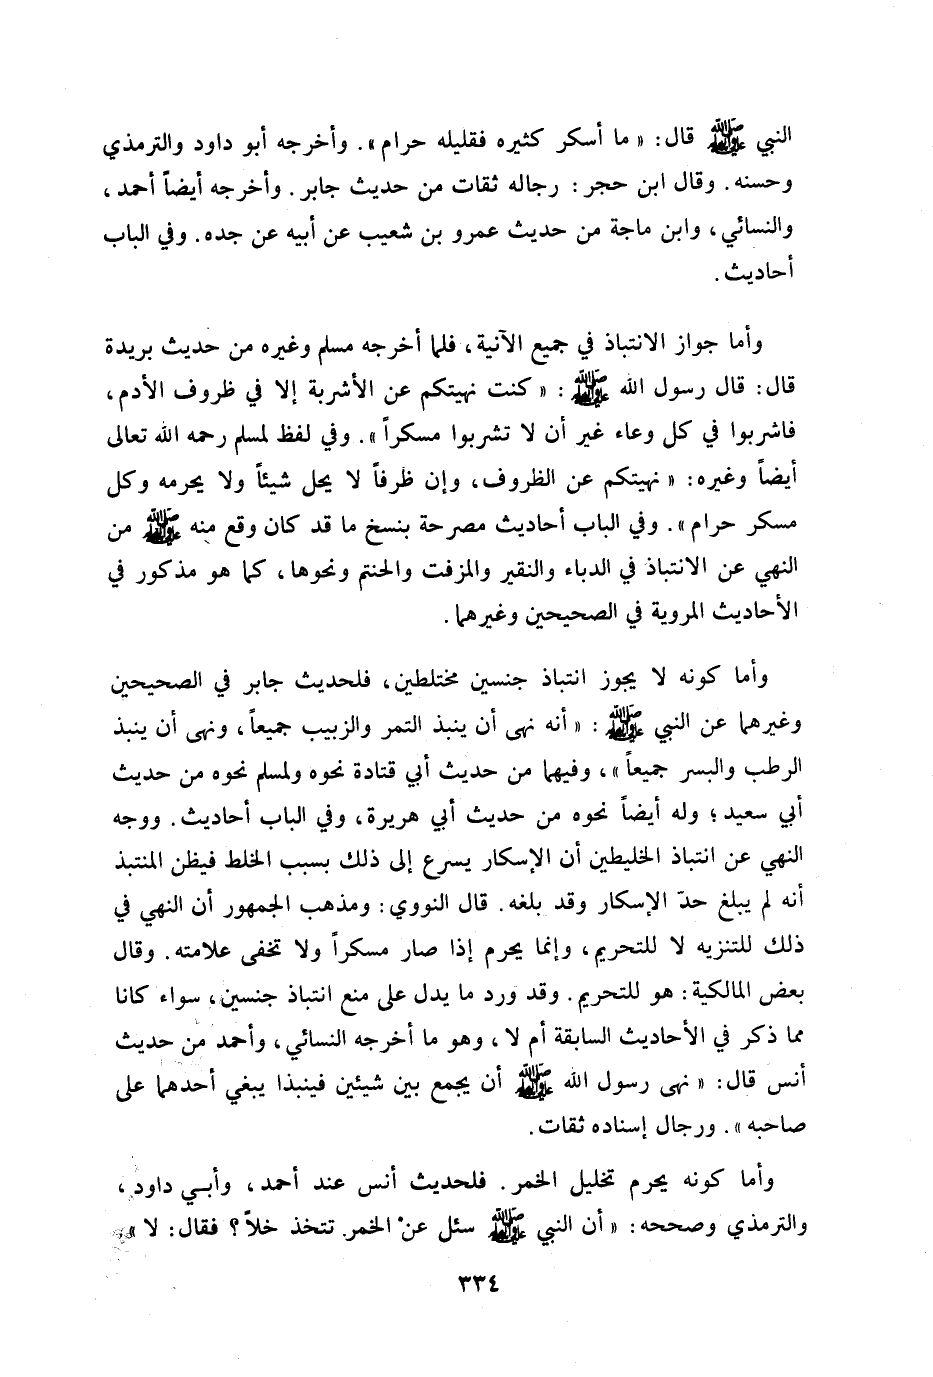 النبي ﷺ قال: « ما أسكر كثيره فقليله حرام». وأخرجه أبو داود والترمذي
وحسنه. وقال ابن حجر: رجاله ثقات من حديث جابر. وأخرجه أيضاً أحمد،
والنسائي، وابن ماجة من حديث عمرو بن شعيب عن أبيه عن جده. وفي الباب
أحاديث.
وأما جواز الانتباذ في جميع الآنية، فلما أخرجه مسلم وغيره من حديث بريدة
قال: قال رسول الله ﷺ: « كنت نهيتكم عن الأشربة إلا في ظروف الأدم،
فاشربوا في كل وعاء غير أن لا تشربوا مسكراً». وفي لفظ لمسلم رحمه الله تعالى
أيضاً وغيره: « نهيتكم عن الظروف، وإن ظرفاً لا يحل شيئاً ولا يحرمه وكل
مسكر حرام». وفي الباب أحاديث مصرحة بنسخ ما قد كان وقع منه ﷺ من
النهي عن الانتباذ في الدباء والنقير والمزفت والحنتم ونحوها، كما هو مذكور في
الأحاديث المروية في الصحيحين وغيرهما.
وأما كونه لا يجوز انتباذ جنسين مختلطين، فلحديث جابر في الصحيحين
وغيرهما عن النبي ﷺ: « أنه نهى أن ينبذ التمر والزبيب جميعاً، ونهى أن ينبذ
الرطب والبسر جميعاً»، وفيهما من حديث أبي قتادة نحوه ولمسلم نحوه من حديث
أبي سعيد؛ وله أيضاً نحوه من حديث أبي هريرة، وفي الباب أحاديث. ووجه
النهي عن انتباذ الخليطين أن الإسكار يسرع إلى ذلك بسبب الخلط فيظن المنتبذ
أنه لم يبلغ حدّ الإسكار وقد بلغه. قال النووي: ومذهب الجمهور أن النهي في
ذلك للتنزيه لا للتحريم، وإنما يحرم إذا صار مسكراً ولا تخفى علامته. وقال
بعض المالكية: هو للتحريم. وقد ورد ما يدل على منع انتباذ جنسين، سواء كانا
مما ذكر في الأحاديث السابقة أم لا، وهو ما أخرجه النسائي، وأحمد من حديث
أنس قال: « نهى رسول الله ﷺ أن يجمع بين شيئين فينبذا يبغي أحدهما على
صاحبه». ورجال إسناده ثقات.
وأما كونه يحرم تخليل الخمر. فلحديث أنس عند أحمد، وأبي داود،
والترمذي وصححه: « أن النبي ﷺ سئل عن الخمر تتخذ خلاً؟ فقال: لا»
٣٣٤